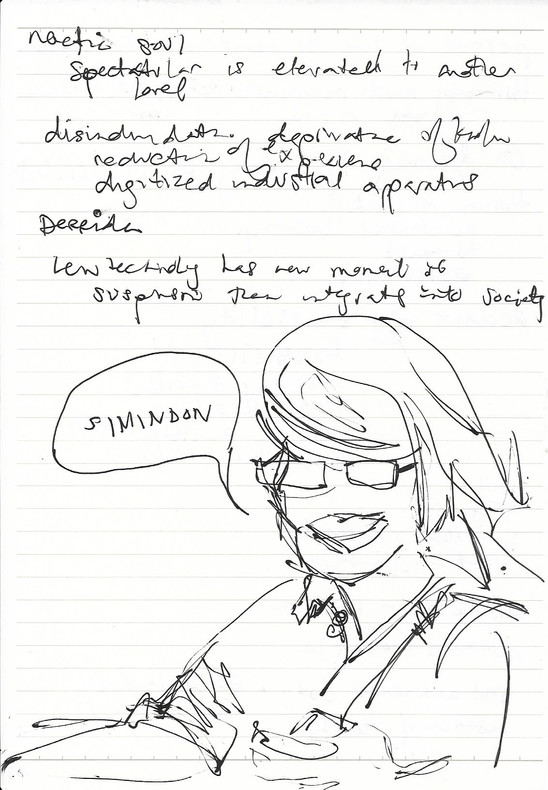 noetic soul
spectacular is elevated to another
level
disindividation. deprivation of
reduction of experience
digitized industrial apparatus
Derrida
has new moment of
suspension then integrates into society
SIMINDON